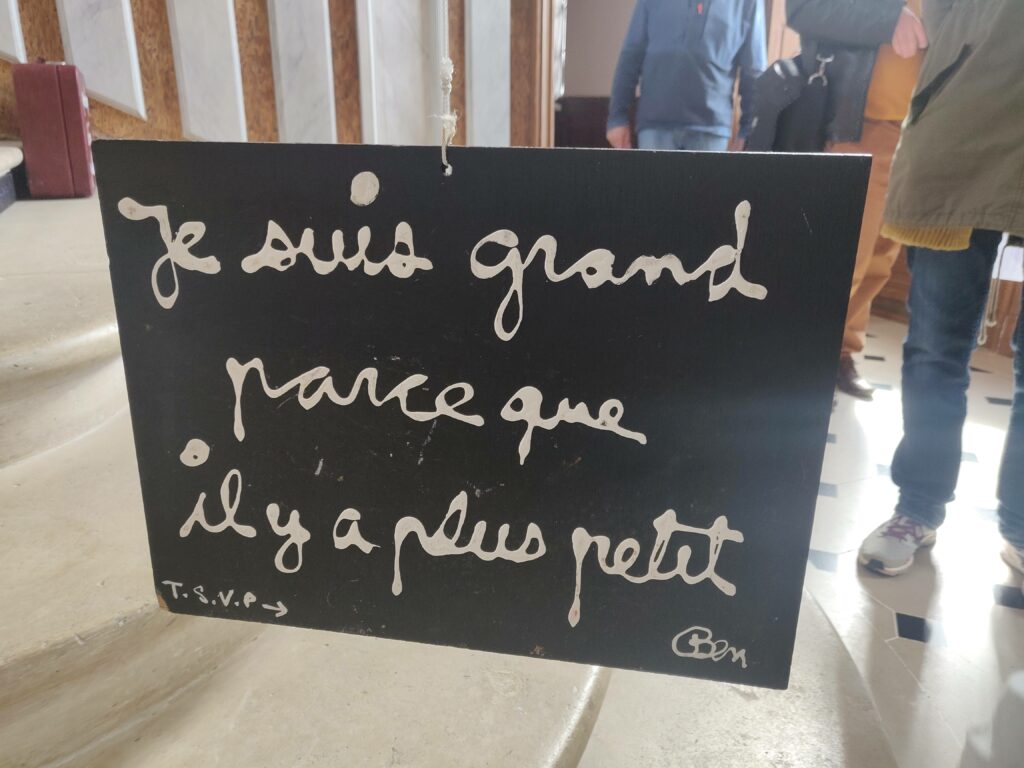 Je suis grand
parce que
il y a plus petit
T.S.V.P →
Ben